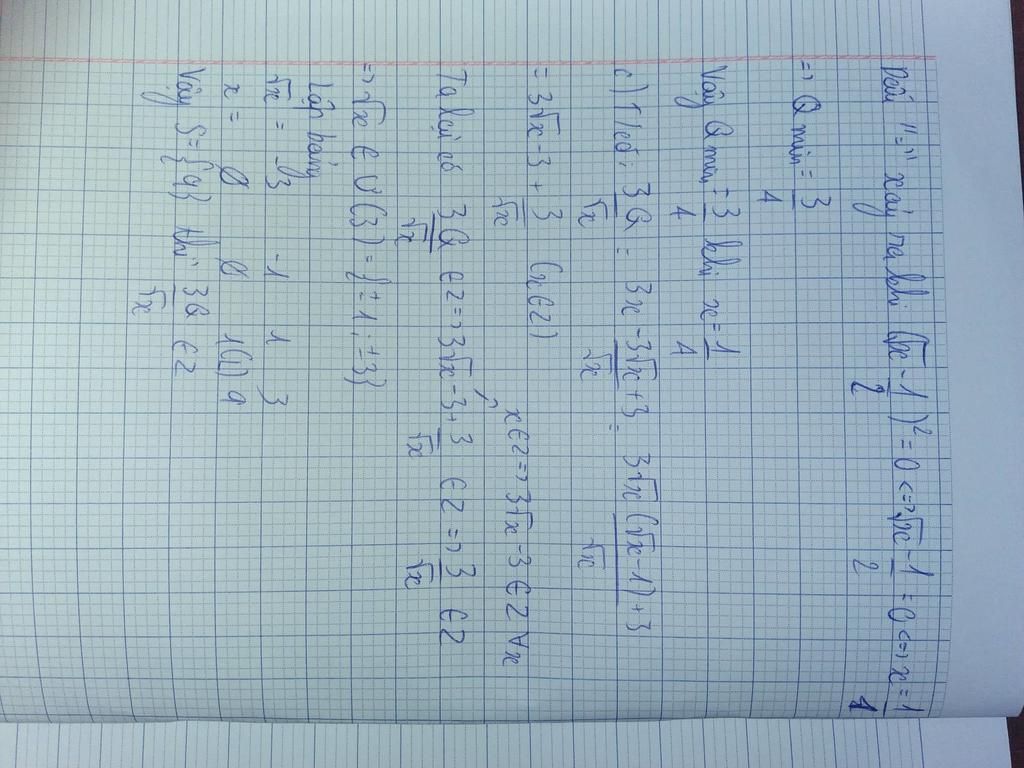 Dấu "=" xảy ra khi (√x - 1/2)² = 0 <=> √x - 1/2 = 0 <=> x = 1/4
=> Q min = 3/4
Vậy Q min = 3/4 khi x = 1/4
c) Ta có: 3Q/√x = 3x - 3√x + 3/√x = 3√x (√x - 1) + 3/√x
= 3√x - 3 + 3/√x (x ∈ Z)
x ∈ Z => 3√x - 3 ∈ Z ∀x
Ta lại có 3Q/√x ∈ Z => 3√x - 3 + 3/√x ∈ Z => 3/√x ∈ Z
=> √x ∈ Ư(3) = {±1; ±3}
Lập bảng
√x = -3 -1 1 3
x = Ø Ø 1(L) 9
Vậy S = {9} thì 3Q/√x ∈ Z